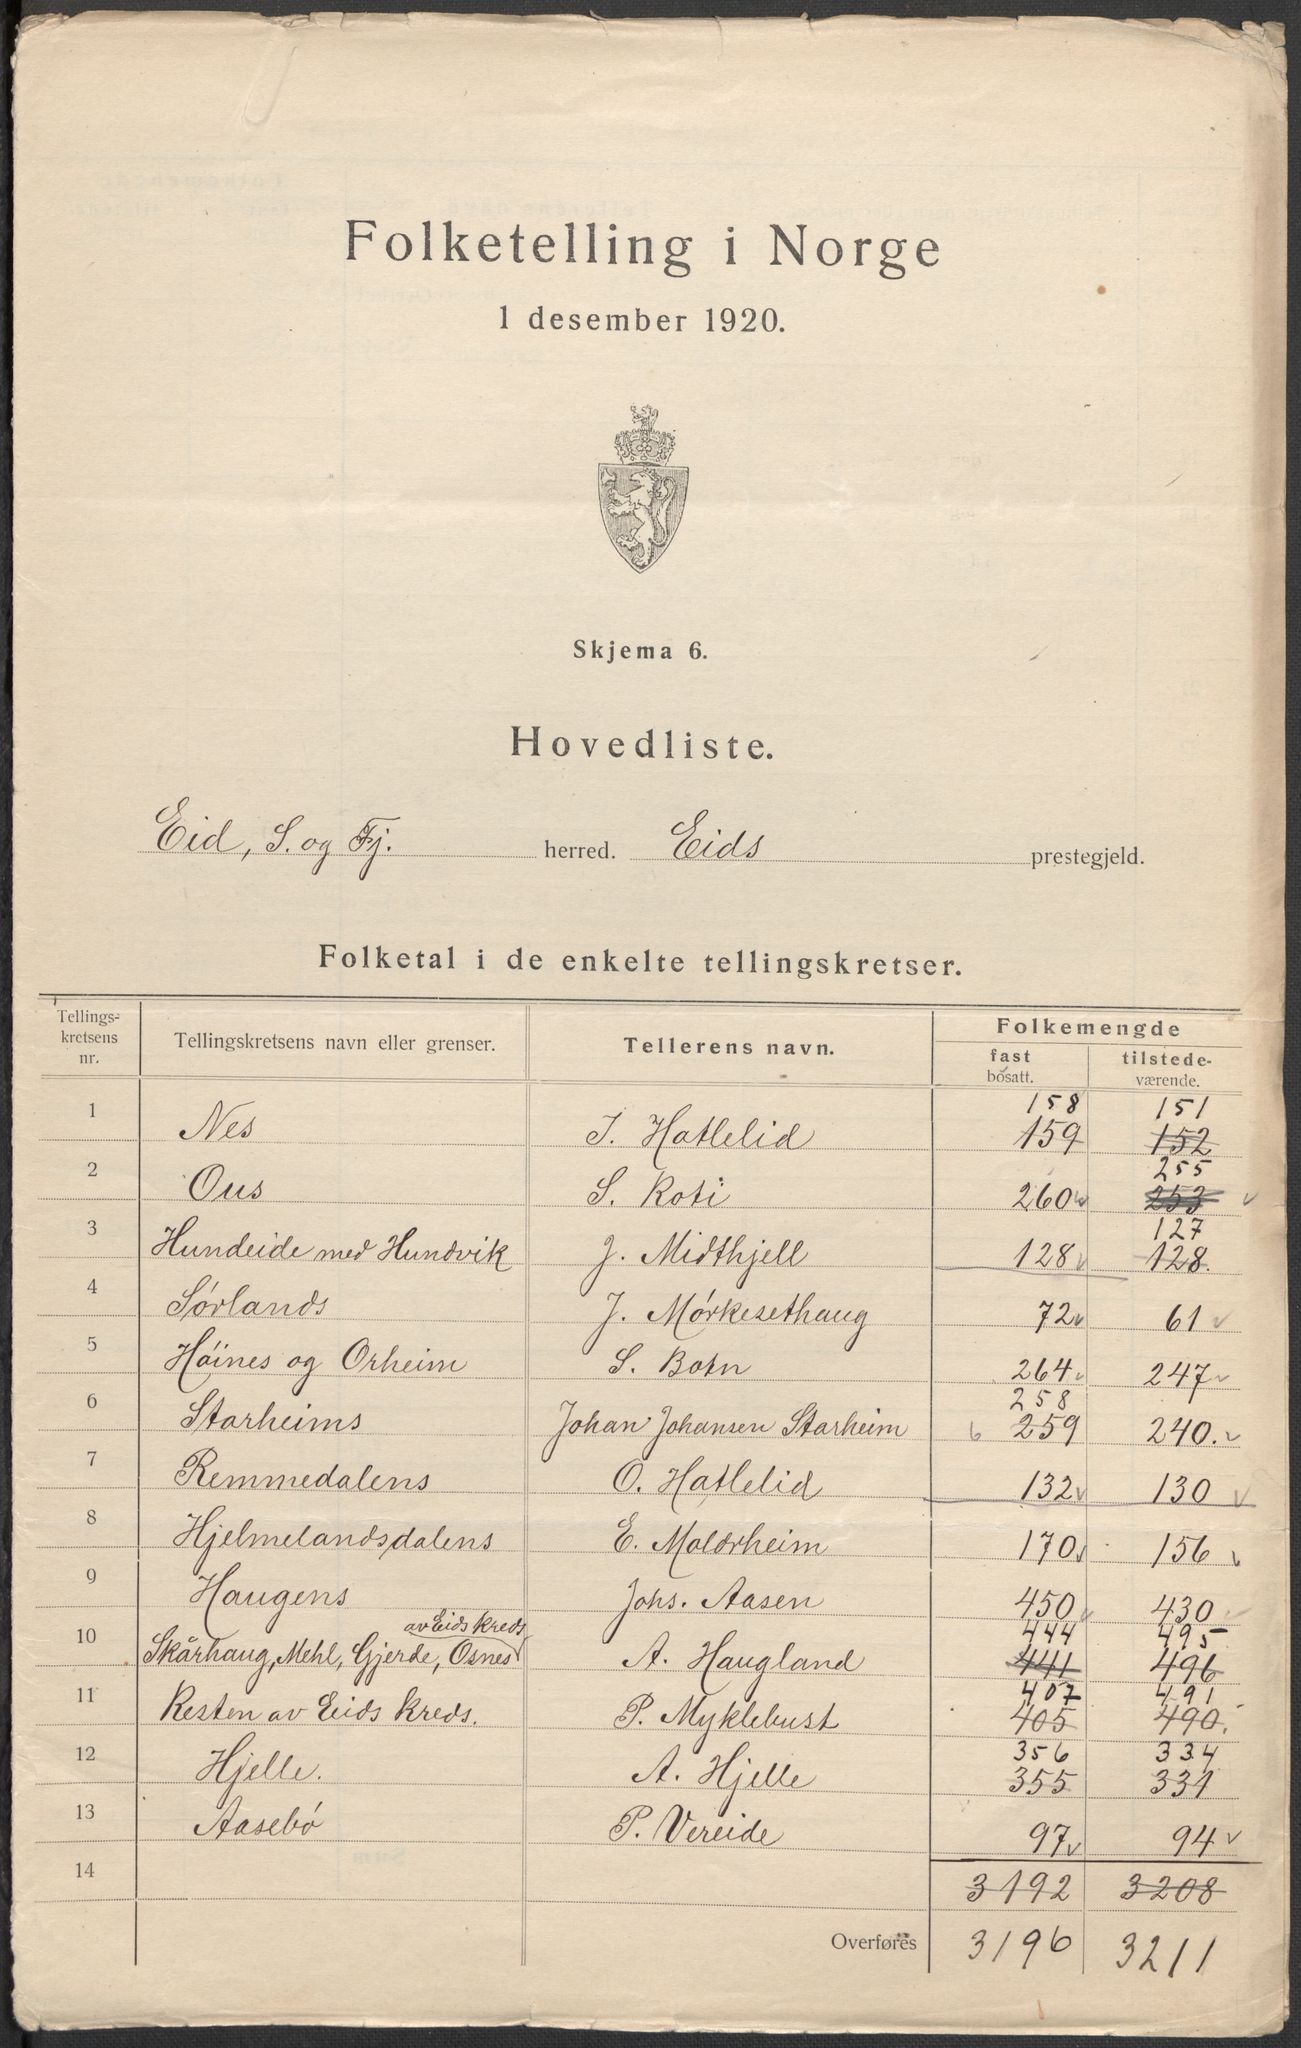 Folketelling i Norge
1 desember 1920.
Skjema 6.
Hovedliste.
Eid, S. og Fj. herred. Eids prestegjeld.
Folketal i de enkelte tellingskretser.
Tellings-
kretsens
nr.
Tellingskretsens navn eller grenser.
Tellerens navn.
Folkemengde
fast
bosatt.
tilstede-
værende.
158 151
1 Nes J. Hatlelid 159 152
255
2 Ous S. Roti 260 253
127
3 Hundeide med Hundvik J. Midthjell 128 128.
4 Sørlands J. Mørkesethaug 72 61
5 Høines og Orheim S. Botn 264 247
258
6 Starheims Johan Johansen Starheim 259 240.
7 Remmedalens O. Hatlelid 132 130
8 Hjelmelandsdalens E. Moldrheim 170 156
9 Haugens Johs. Aasen 450 430
av Eids kreds 444 495
10 Skårhaug, Mehl, Gjerde, Osnes A. Haugland 441 496
407 491
11 Resten av Eids kreds. P. Myklebust 405 490.
356 334
12 Hjelle. A. Hjelle 355 331
13 Aasebø P. Vereide 97 94
14 3192 3208
Overføres 3196 3211